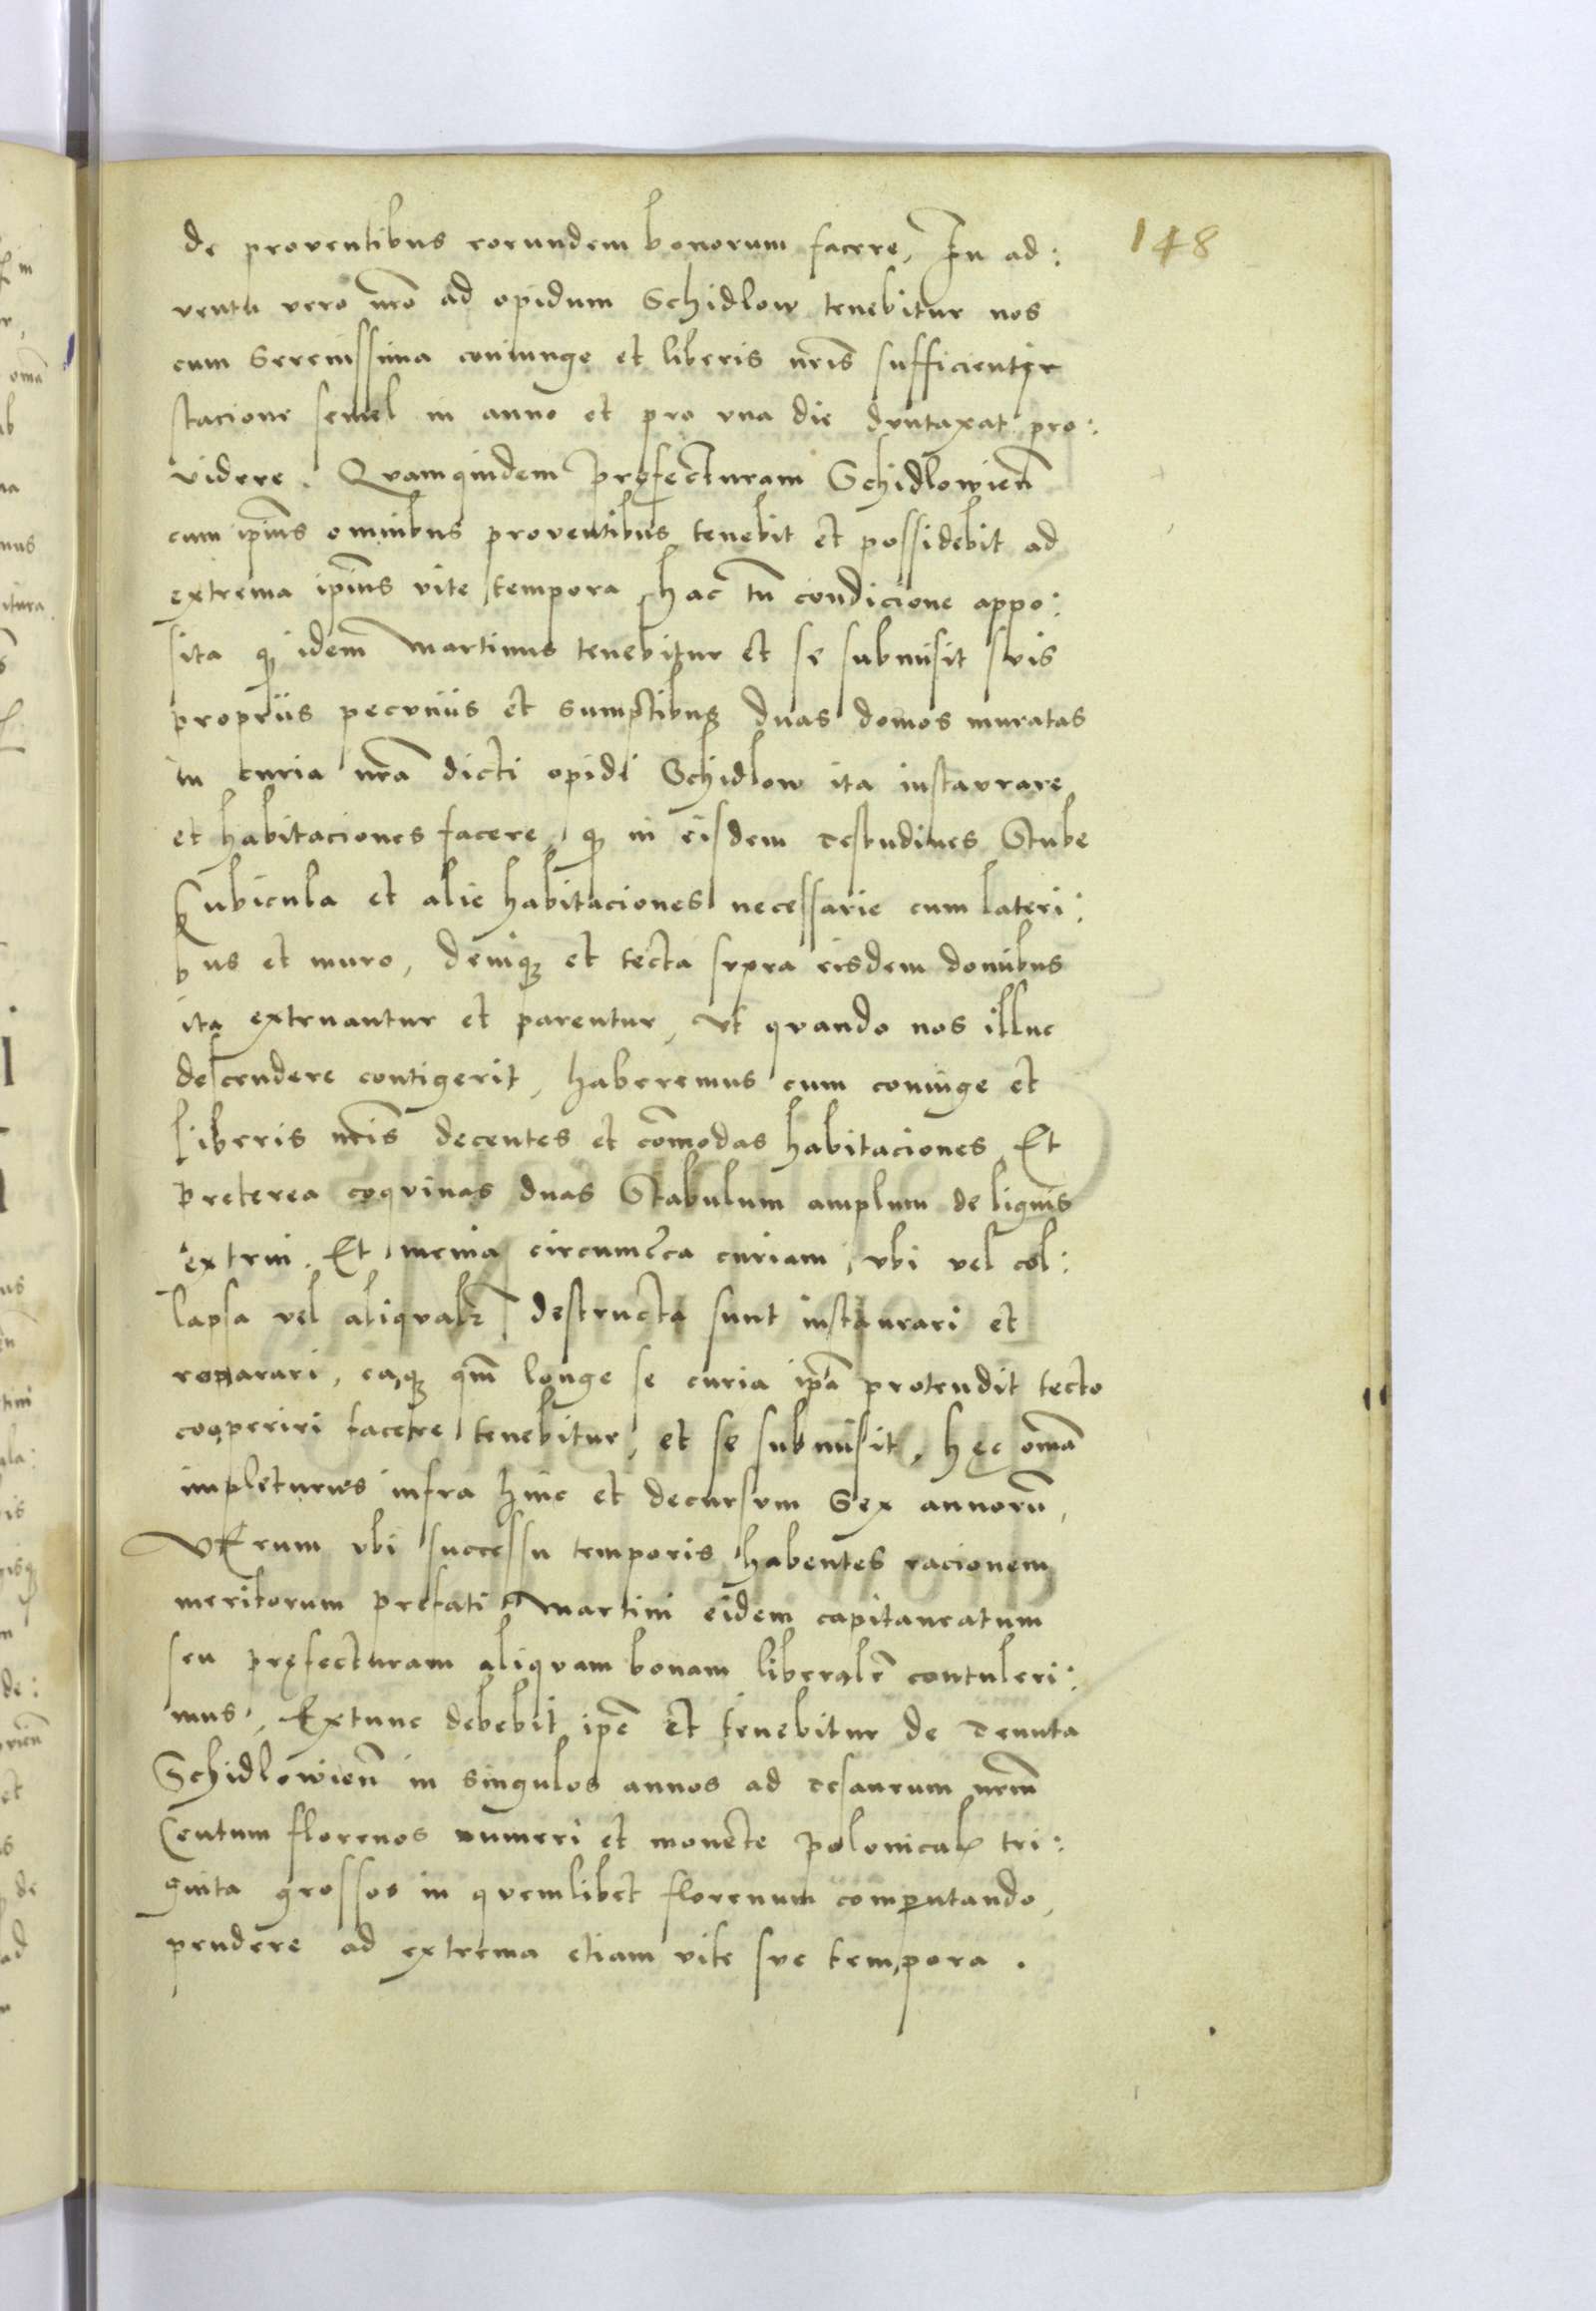 148
de proventibus eorundem bonorum facere, In ad:
ventu vero nr̃o ad opidum Schidlow tenebitur nos
cum Serenissima coniunge et liberis nr̃is sufficienter
stacione semel in anno et pro vna die duntaxat pro:
videre. Quamquidem pręfecturam Schidlowieñ
cum ipĩus omnibus proventibus tenebit et possidebit ad
extrema ipĩus vite tempora, hac tñ condicione appo:
sita q̃ idem Martinus tenebitur et se submisit suis
propriis pecuniis et sumptibus duas domos muratas
in curia nr̃a dicti opidi Schidlow ita instaurare
et habitaciones facere, q̃ in eisdem testudines Stube
Cubicula et alie habitaciones necessarie cum lateri:
bus et muro, deniqꝫ et tecta supra eisdem domibus
ita extruantur et parentur, Vt quando nos illuc
descendere contigerit, haberemus cum coniuge et
liberis nr̃is decentes et cõmodas habitaciones, Et
preterea coquinas duas Stabulum amplum de lignis
extrui. Et menia circumcirca curiam, vbi vel col:
lapsa vel aliqualr̃ destructa sunt instaurari et
reparari, eaqꝫ qm̃ longe se curia ipã protendit tecto
cooperiri facere tenebitur, et se submisit, hęc om̃ia
impleturus infra hinc et decursum Sex annorũ,
Verum vbi successu temporis habentes racionem
meritorum prefati Martini eidem capitaneatum
seu pręfecturam aliquam bonam liberalr̃ contuleri:
mus, Extunc debebit ipẽ et tenebitur de tenuta
Schidlowieñ in singulos annos ad tesaurum nr̃m
Centum florenos numeri et monete polonicalꝭ tri:
ginta grossos in quemlibet florenum computando,
pendere ad extrema etiam vite sue tempora.